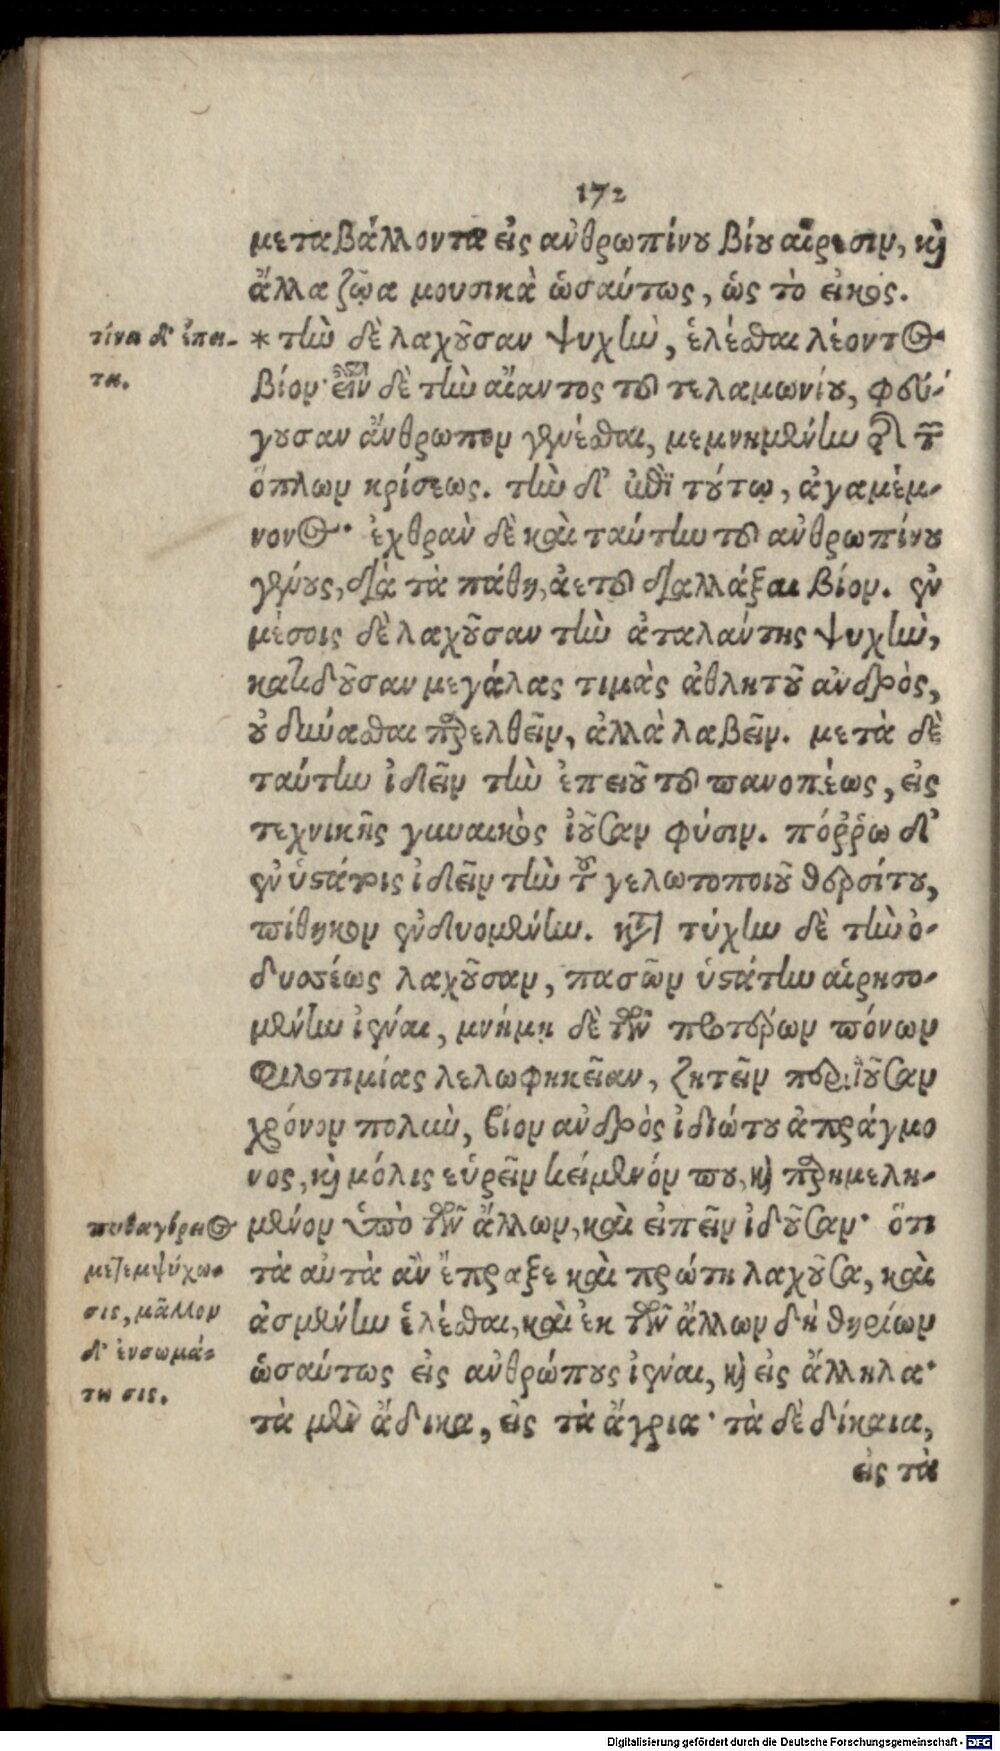 172
μεταβάλλοντα εἰς ἀνθρωπίνου βίου αἵρεσιν, καὶ
ἄλλα ζῷα μουσικὰ ὡσαύτως, ὡς τὸ εἰκός.
τίνα δ' ἐπει-
τα.
* τὴν δὲ λαχοῦσαν ψυχὴν, ἑλέσθαι λέοντος
βίον· εἶναι δὲ τὴν αἴαντος τοῦ τελαμωνίου, φεύ-
γουσαν ἄνθρωπον γενέσθαι, μεμνημένην τῆς τῶν
ὅπλων κρίσεως. τὴν δ' ἐπὶ τούτῳ, ἀγαμέμ-
νονος· ἐχθρᾲν δὲ καὶ ταύτην τοῦ ἀνθρωπίνου
γένους, διὰ τὰ πάθη, ἀετοῦ διαλλάξαι βίον. ἐν
μέσοις δὲ λαχοῦσαν τὴν ἀταλάντης ψυχὴν,
κατιδοῦσαν μεγάλας τιμὰς ἀθλητοῦ ἀνδρὸς,
οὐ δύνασθαι παρελθεῖν, ἀλλὰ λαβεῖν. μετὰ δὲ
ταύτην ἰδεῖν τὴν ἐπειοῦ τοῦ πανοπέως, εἰς
τεχνικῆς γυναικὸς ἰοῦσαν φύσιν. πόῤῥω δ'
ἐν ὑστάτοις ἰδεῖν τὴν τοῦ γελωτοποιοῦ θερσίτου,
πίθηκον ἐνδυομένην. κατὰ τύχην δὲ τὴν ὀ-
δυσσέως λαχοῦσαν, πασῶν ὑστάτην αἱρησο-
μένην ἰέναι, μνήμῃ δὲ τῶν προτέρων πόνων
φιλοτιμίας λελωφηκεῖαν, ζητεῖν περιϊοῦσαν
χρόνον πολὺν, βίον ἀνδρὸς ἰδιώτου ἀπράγμο
νος, καὶ μόλις εὑρεῖν κείμενόν που, καὶ παρημελη-
πυθαγόρειος
μετεμψύχω-
σις, μᾶλλον
δ' ἐνσωμά-
τησις.
μένον ὑπὸ τῶν ἄλλων, καὶ εἰπεῖν ἰδοῦσαν· ὅτι
τὰ αὐτὰ ἂν ἔπραξε καὶ πρώτη λαχοῦσα, καὶ
ἀσμένην ἑλέσθαι, καὶ ἐκ τῶν ἄλλων δὴ θηρίων
ὡσαύτως εἰς ἀνθρώπους ἰέναι, καὶ εἰς ἄλληλα·
τὰ μὲν ἄδικα, εἰς τὰ ἄγρια· τὰ δὲ δίκαια,
εἰς τὰ
Digitalisierung gefördert durch die Deutsche Forschungsgemeinschaft - DFG